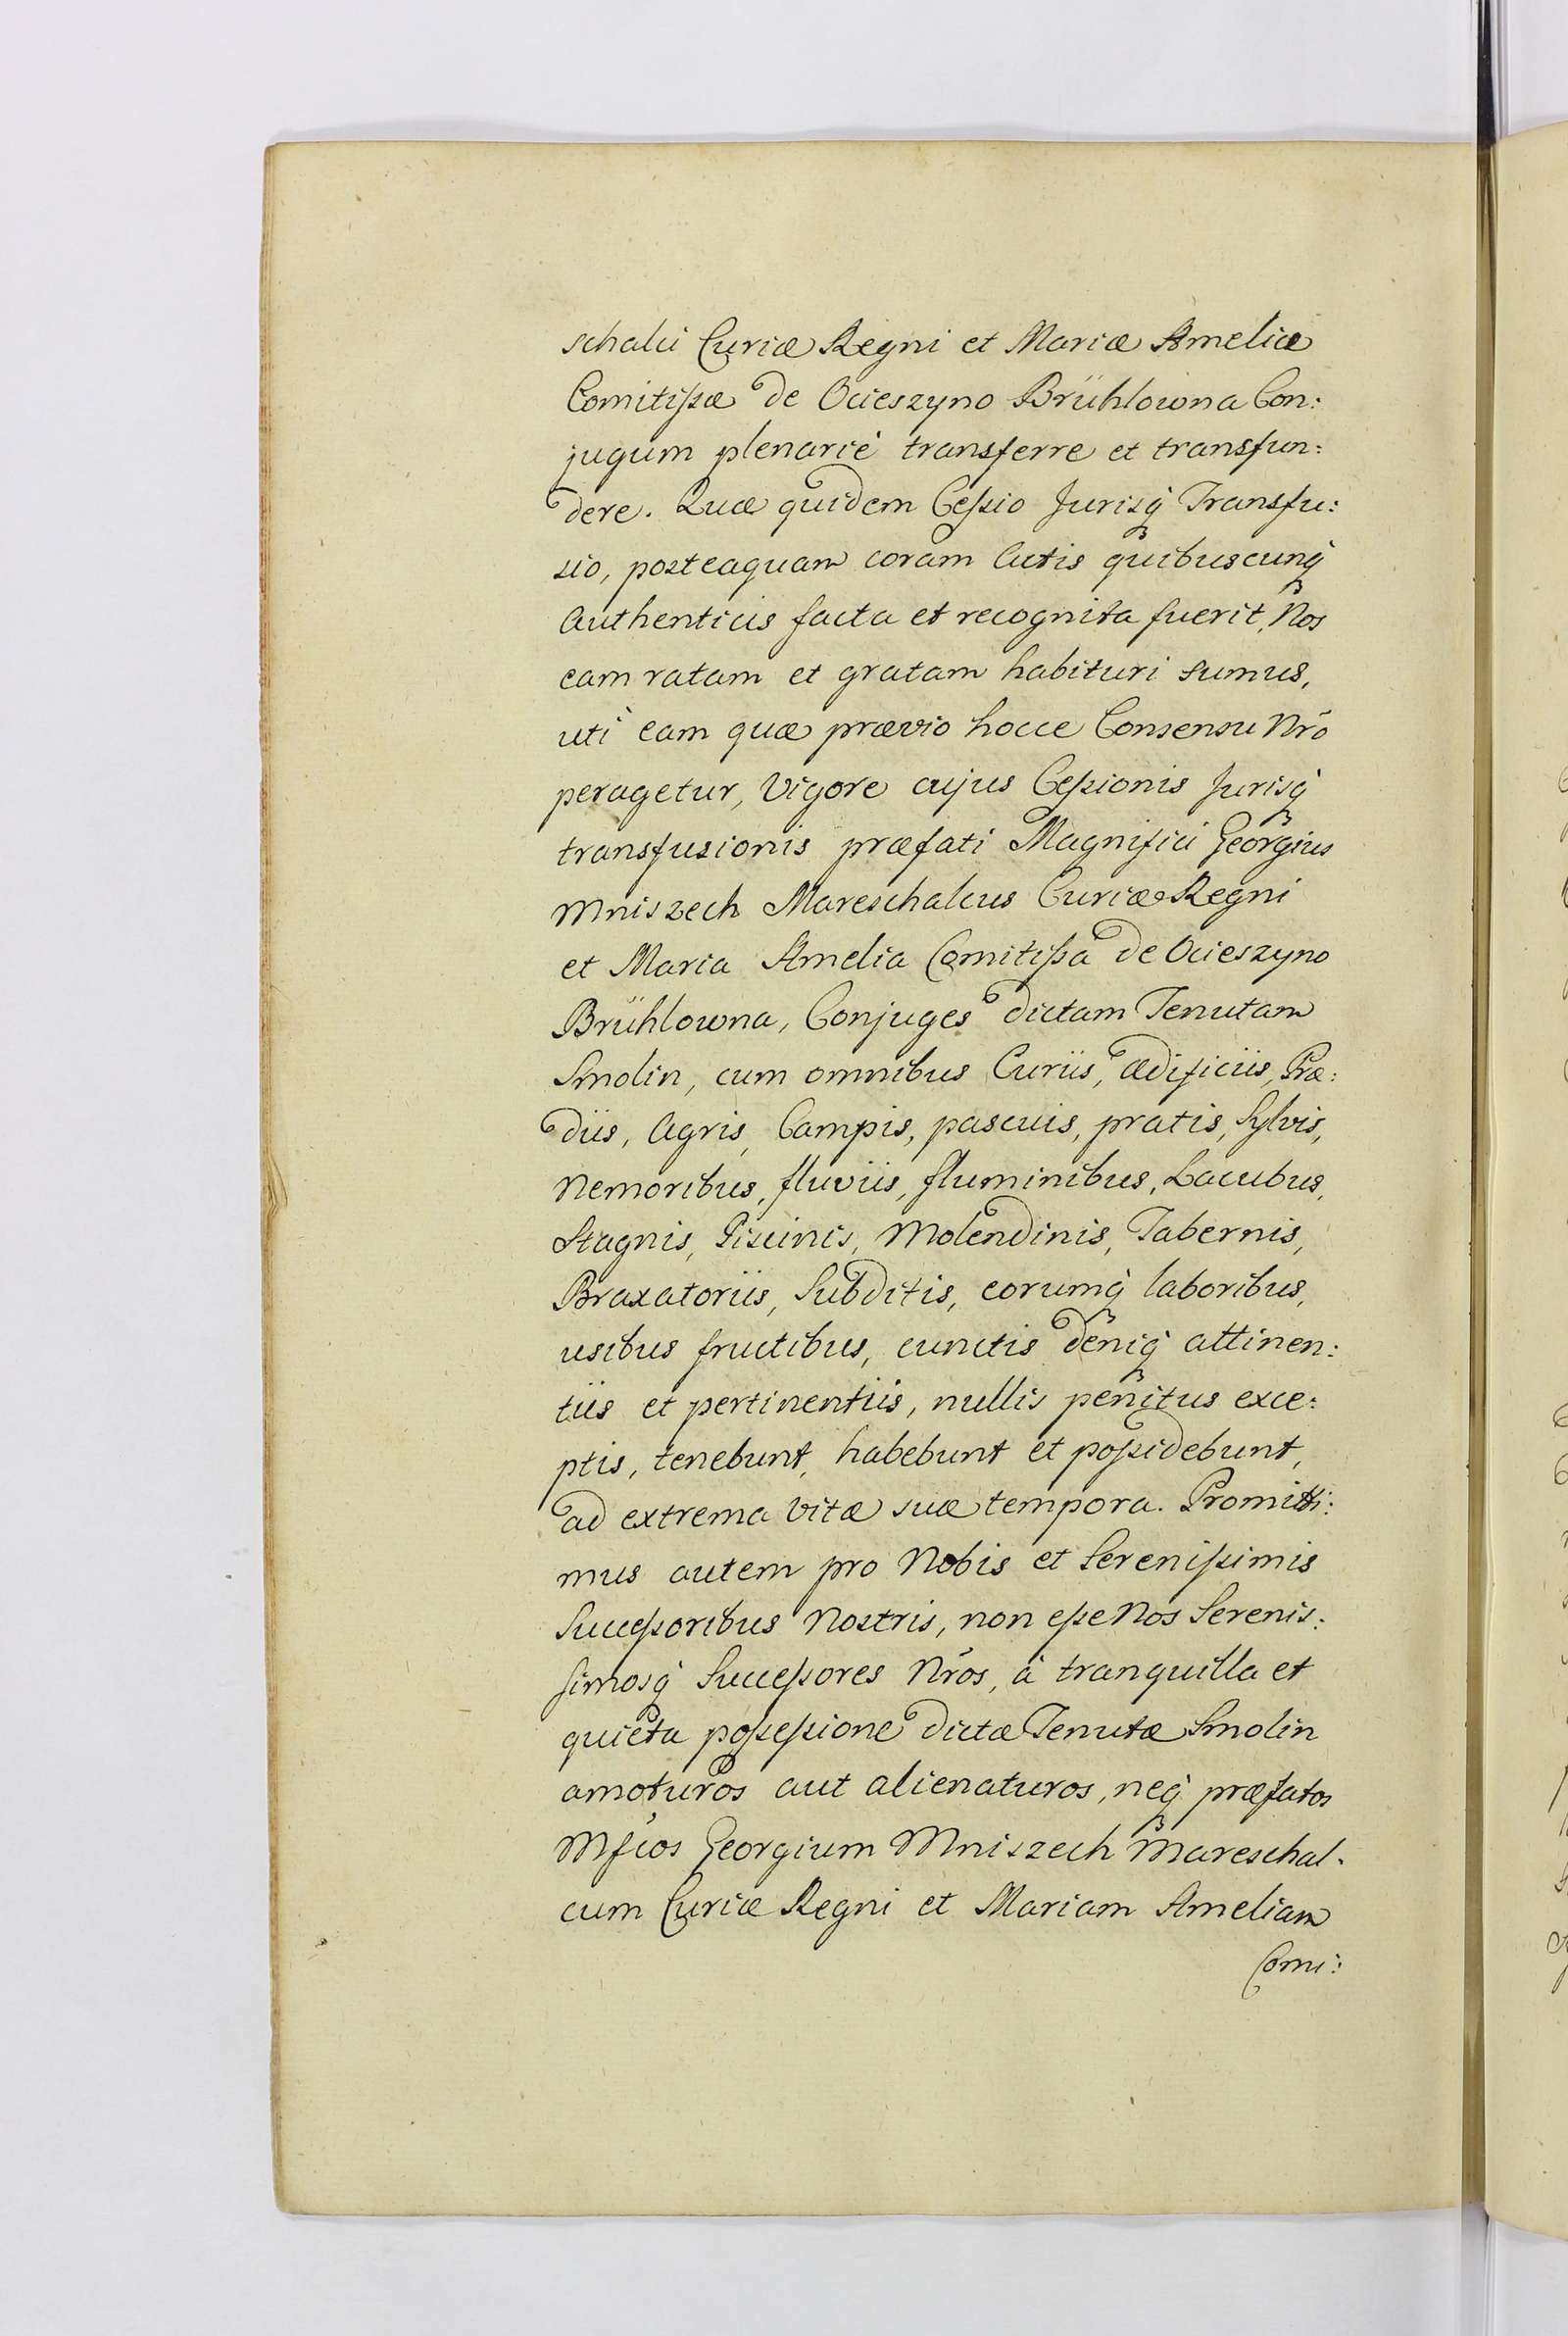 schalci Curiæ Regni et Mariæ Ameliæ
Comitißæ de Ocieszyno Brühlowna Con:
jugum plenariè transferre et transfun:
dere. Quæ quidem Ceßio Jurisq̀ Transfu:
sio, posteaquam coram Actis quibuscunq̀
Authenticis facta et recognita fuerit, Nos
eam ratam et gratam habituri sumus,
uti eam quæ prævio hocce Consensu Nr̃o
peragetur, Vigore cujus Ceßionis Jurisq̀
transfusionis præfati Magnifici Georgius
Mniszech Mareschalcus Curiæ Regni
et Maria Amelia Comitißa de Ocieszyno
Brühlowna, Conjuges dictam Tenutam
Smolin, cum omnibus Curiis, ædificiis, Præ:
diis, Agris, Campis, pascuis, pratis, Sylvis,
Nemoribus, fluviis, fluminibus, Lacubus,
Stagnis, Piscinis, Molendinis, Tabernis,
Braxatoriis, Subditis, eorumq̀ laboribus,
usibus fructibus, cunctis deniq̀ attinen:
tiis et pertinentiis, nullis penitus exce:
ptis, tenebunt, habebunt et poßidebunt,
ad extrema vitæ suæ tempora. Promitti:
mus autem pro Nobis et Serenißimis
Succeßoribus Nostris, non eße Nos Serenis:
simosq̀ Succeßores Nr̃os, à tranquilla et
quieta poßeßione dictæ Tenutæ Smolin
amoturos aut alienaturos, neq̀ præfatos
Mf̃cos Georgium Mniszech Mareschal:
cum Curiæ Regni et Mariam Ameliam
Comi: